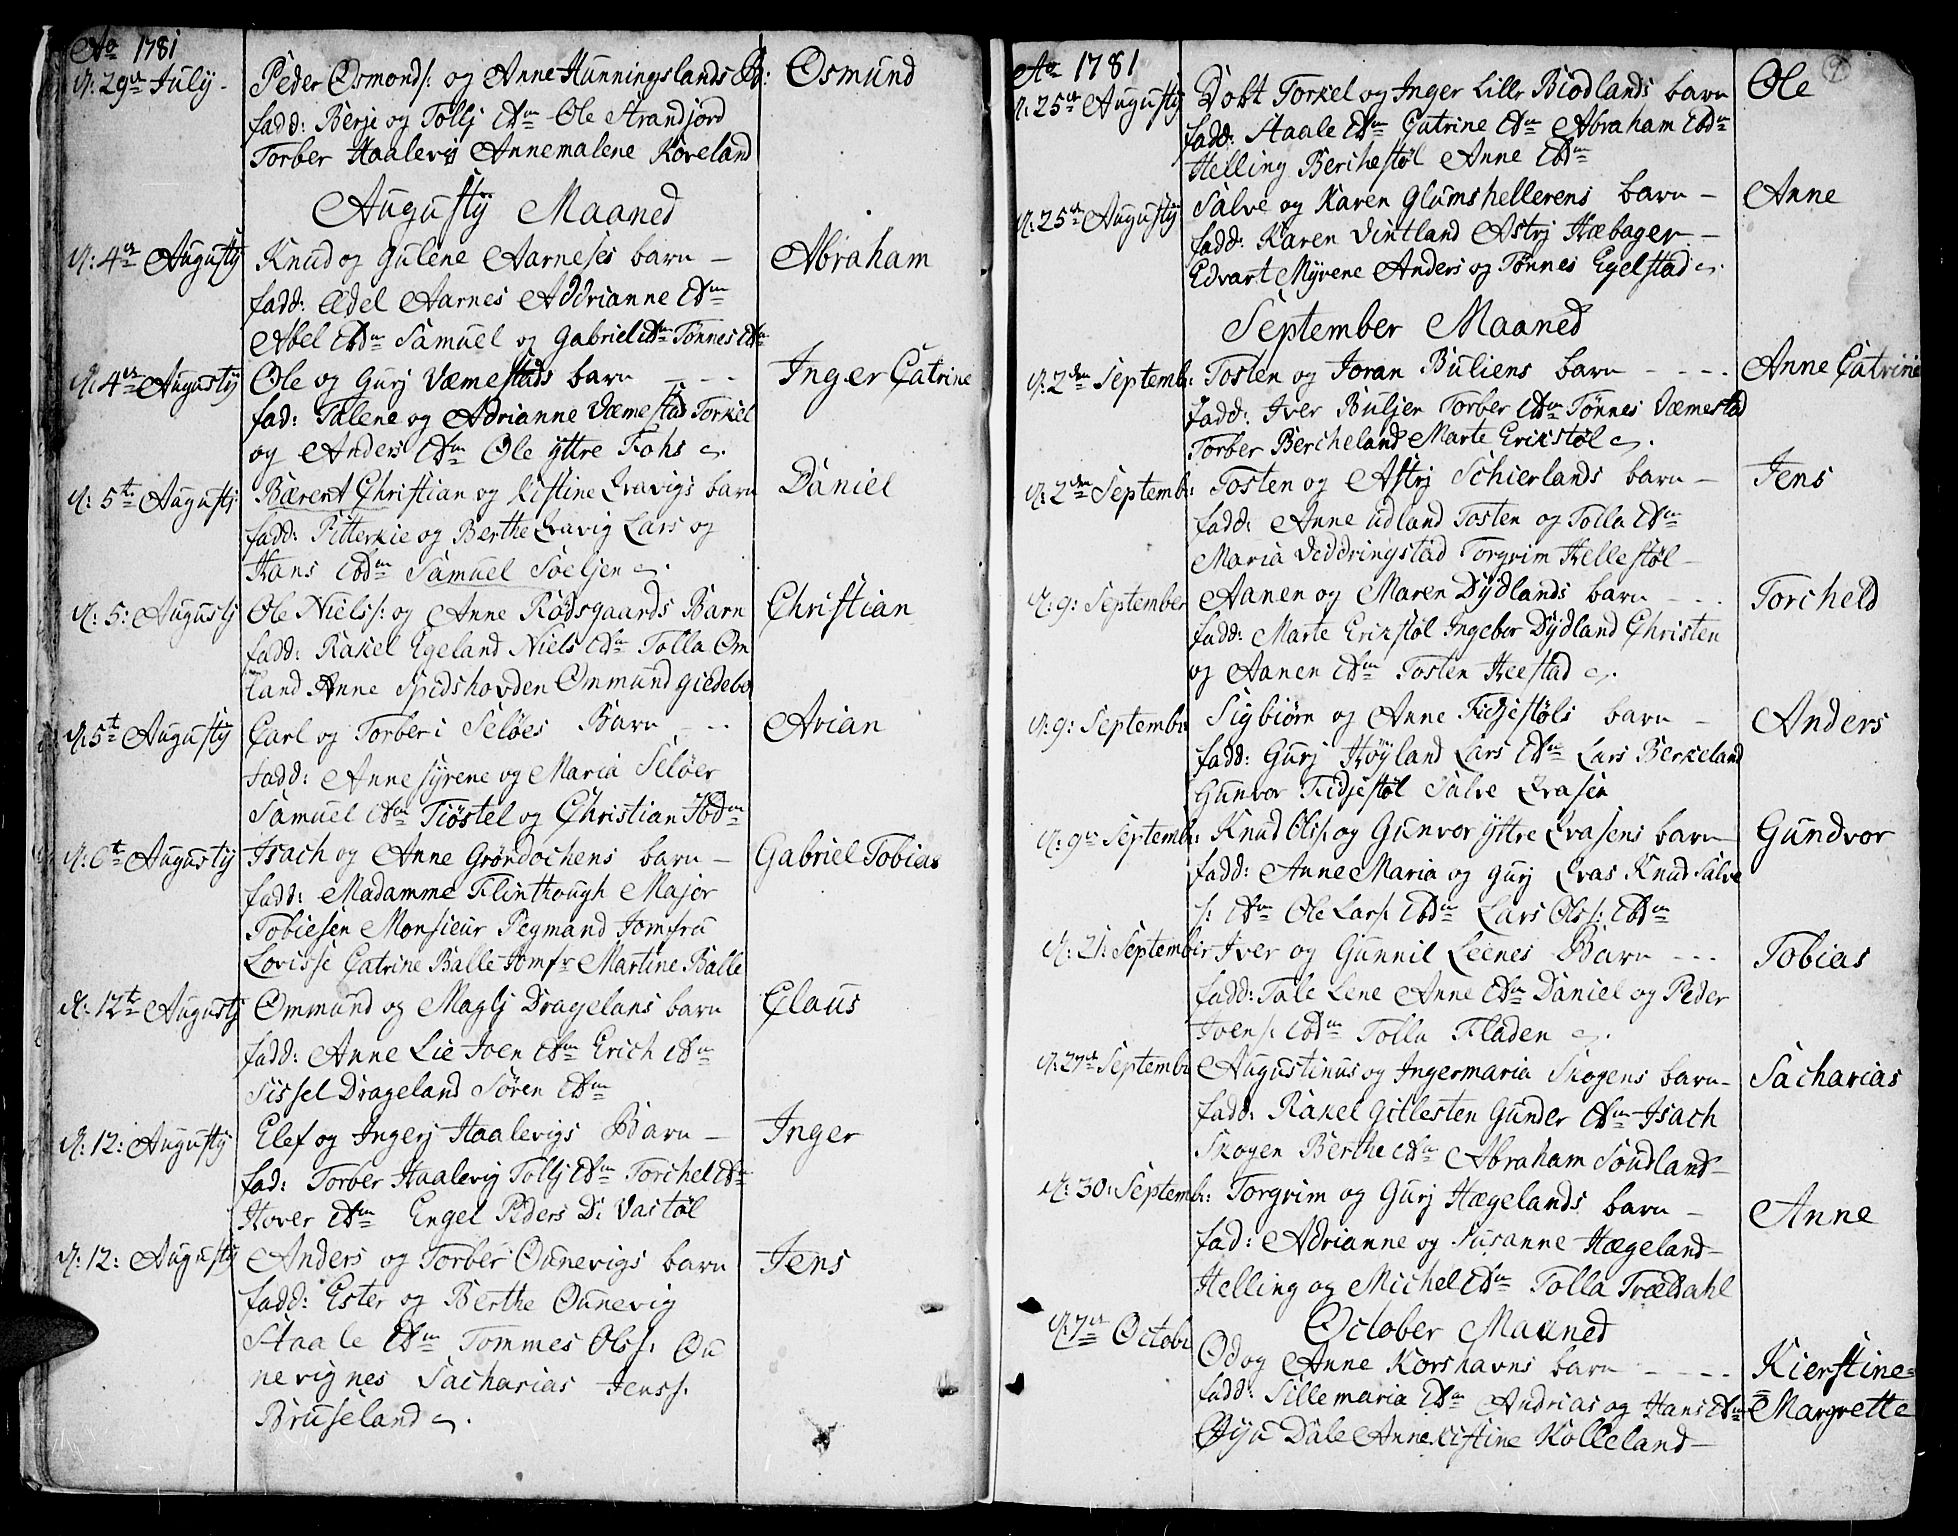 Ao 1781
d: 29de July - Peder Osmonds: og Anne Hunningslands B: Osmund
fadd: Berje og Tollj ibdm Ole Strandjord
Torber Haalevig Annemalene Koveland
Augusty Maaned
d: 4de Augusty Knud og Gulene Aarneses barn - Abraham
fadd: Edel Aarnes Addrianne ibdm
Abel ibdm Samuel og Gabriel ibdm Tønnes ibdm
d: 4de Augusty Ole og Gurj Væmestads barn - - - Inger Catrine
fad: Talene og Adrianne Væmestad Torkel
og Anders ibdm Ole yttre Fohs
d: 5te Augustj Bærent Christian og Kistine Ravigs barn Daniel
fadd: Pitterkie og Berthe Ravig Lars og
Hans ibdm Samuel Soeljen
d: 5: Augustj Ole Niels: og Anne Rødsgaards Barn Christian
fadd: Rakel Egeland Niels ibdm Tolla Om
land Anne Spidshovden Ommund giedebo
d: 5te Augusty Carl og Torberi Seløes Barn - - Avian
fadd: Anne syrene og Maria Seløer
Samuel ibdm Tiøstel og Christian ibdm
d: 6te Augusty Isach og Anne Grøndochens barn - Gabriel Tobias
fadd: Madamme Flinthough Major
Tobiesen Monsieur Pegmand Jomfru
Lovisse Catrine Balle Jomfr Martine Balle
d: 12te Augustj Ommund og Maglj Dragelans barn Claus
fadd: Anne Lie Joen ibdm Erich ibdm
Sissel Drageland Søren ibdm
d: 12: Augusty Elef og Ingerj Haalevigs Barn - Inger
fad: Torber Haalevig Tollj ibdm Torchel ibdm
Hover ibdm Engel Peders D: Vastøl
d: 12: Augusty Anders og Torber Ounevigs barn Jens
fadd: Ester og Berthe Ounevig
Staale ibdm Tommes Olss: Ou
nevignes Sacharias Jenss:
Bruseland
Ao 1781
d: 25de Augusty Dobt Torkel og Inger Lille Biodlands barn Ole
fadd: Staale ibdm Catrine ibdm Abraham ibdm
Helling Berchestøl Anne ibdm
d: 25de Augusty Salve og Karen Glumshellerens barn - Anne
fadd: Karen Vintland Astrj Hæbager -
Edvart Myrene Anders og Tønnes Egelstad
September Maaned
d: 2den Septemb: Tosten og Joran Buliens barn - - - - Anne Catrine
fadd: Iver Buljen Torber ibdm Tønnes Væmestad
Torber Bercheland Marte Erikstøl
d: 2den Septemb: Tosten og Astrj Schierlands barn - Jens
fadd: Anne Udland Tosten og Tolla ibdm
Maria Veddringstad Torgrim Hellestøl -
d: 9: September Aanen og Maren Dydlands barn - - - Torcheld
fadd: Marte Erikstøl Ingebor Dydland Christen
og Aanen ibdm Tosten Heestad
d: 9: September Sigbiørn og Anne Fidjestøls barn - Anders
fadd: Gurj Høyland Lars ibdm Lars Berkeland
Gunvor Fidjestøl Salve Qvasen
d: 9de Septemb: Knud Olss: og Gunvor yttre Qvasens barn Gundvor
fadd: Anne Maria og Gurj Qvas Knud Salve
s: ibdm Ole Lars: ibdm Lars Olss: ibdm
d: 21: September Iver og Gunnil Leenes Barn - - - Tobias
fadd: Tale Lene Anne ibdm Daniel og Peder
Joens: ibdm Tolla Fladen
d: 27de Septembe Augustinus og Ingermaria Skogens barn - Sacharias
fadd: Rakel Gillesten Gunder ibdm Isach
Skogen Berthe ibdm Abraham Soudland -
d: 30: Septemb: Torgrim og Gurj Hægelands barn - Anne
fad: Adrianne og Susanne Hægeland -
Helling og Michel ibdm Tolla Trældahl
October Maaned
d: 7de Octobr Od og Anne Korshavns barn - - - - Kierstine=
=Margrette
fadd: Sille maria ibdm Andrias og Hans ibdm
Dale Anne Kistine Kolleland -